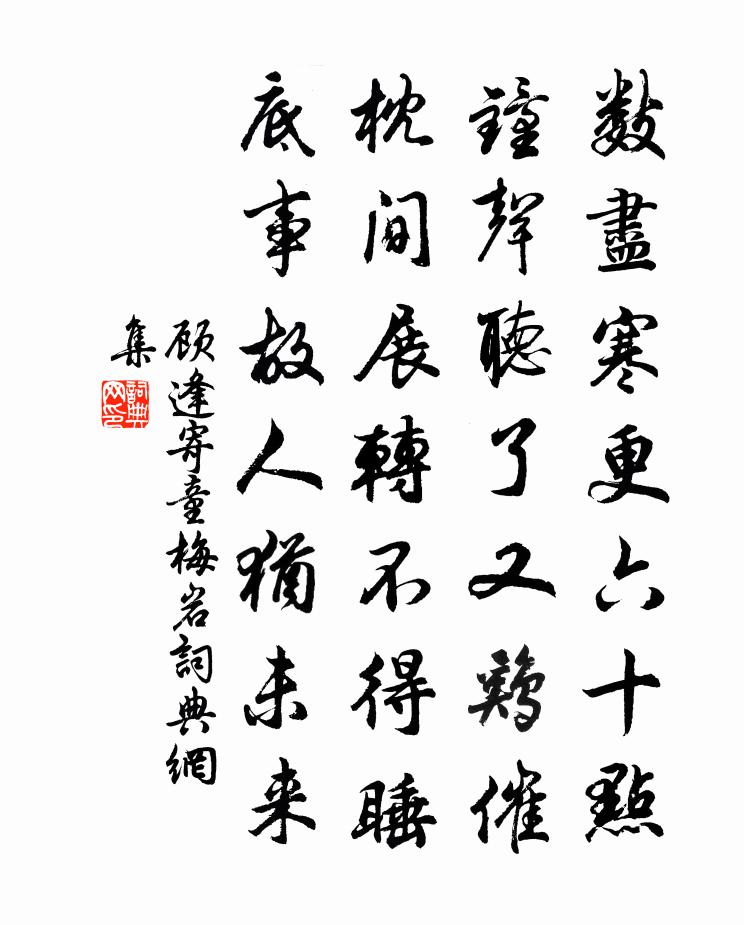 數盡寒更六十點
鐘聲聽了又鷄催
枕間展轉不得睡
底事故人猶未来
顾逢寄童梅岩詞典網
集
詞典
网印